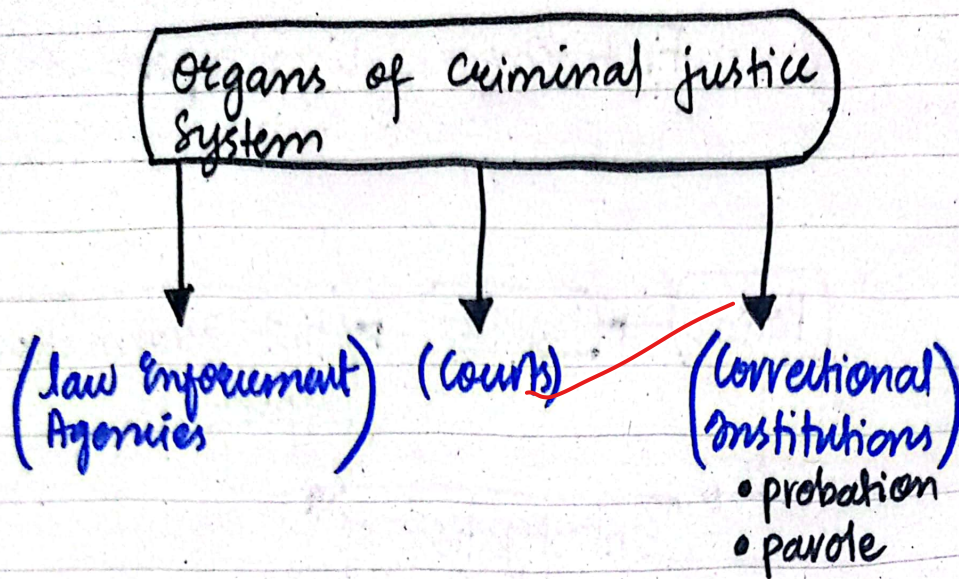 Organs of Criminal justice
System
(law Enforcement
Agencies)
(Courts)
(Correctional
Institutions)
• probation
• parole